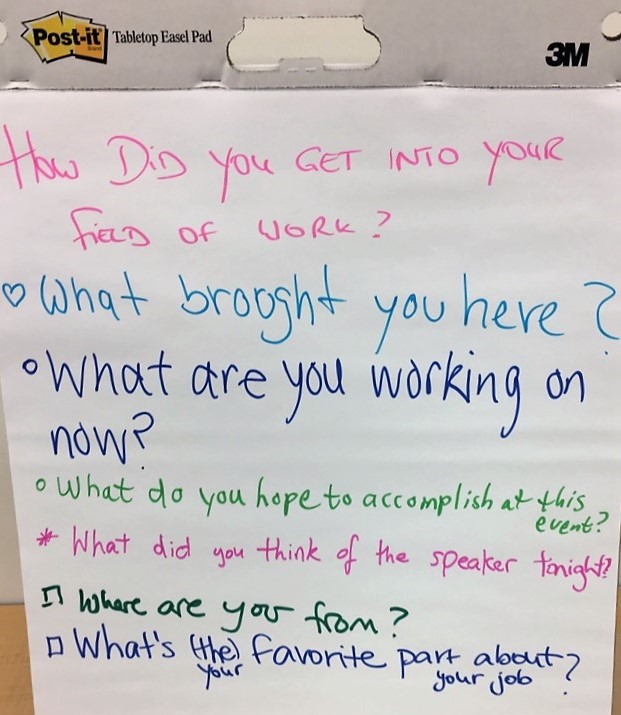 Post-it Tabletop Easel Pad
Brand
3M
How DiD you GET INTO YOUR
fiELD OF WORK?
♡ What brought you here?
o What are you working on
now?
o What do you hope to accomplish at this
event?
* What did you think of the speaker tonight?
□ Where are you from?
□ What's (the) favorite part about?
your your job